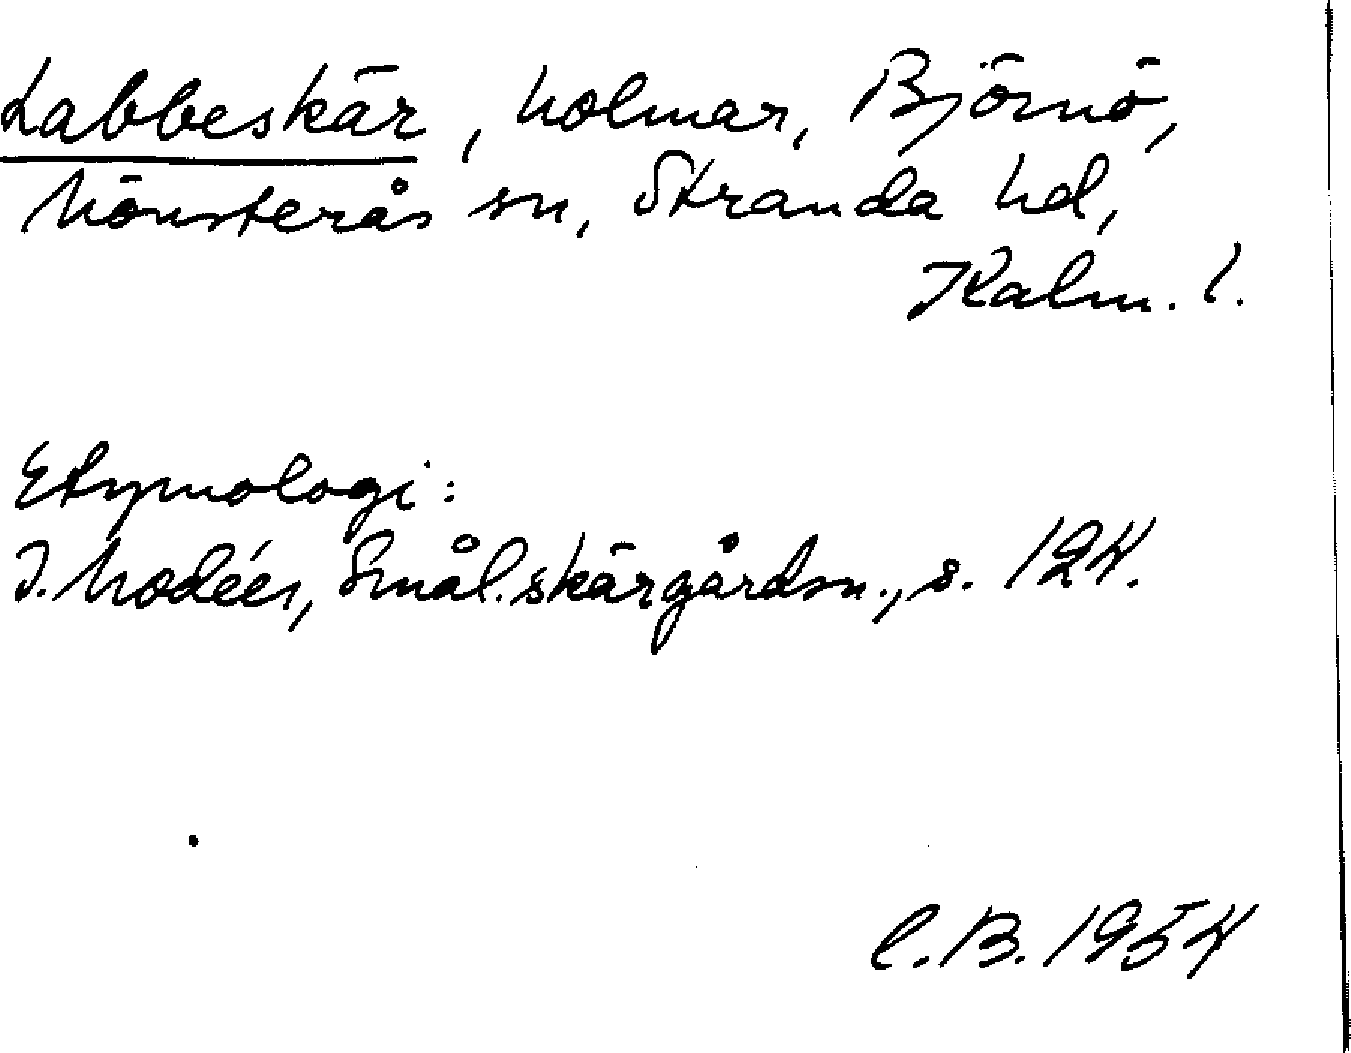 Labbeskär, holmar, Björnö,
Mönsterås sn, Stranda hd,
Kalm. l.
Etymologi:
I. Modéer, Smål. skärgårdsn., s. 124.
C.B. 1954